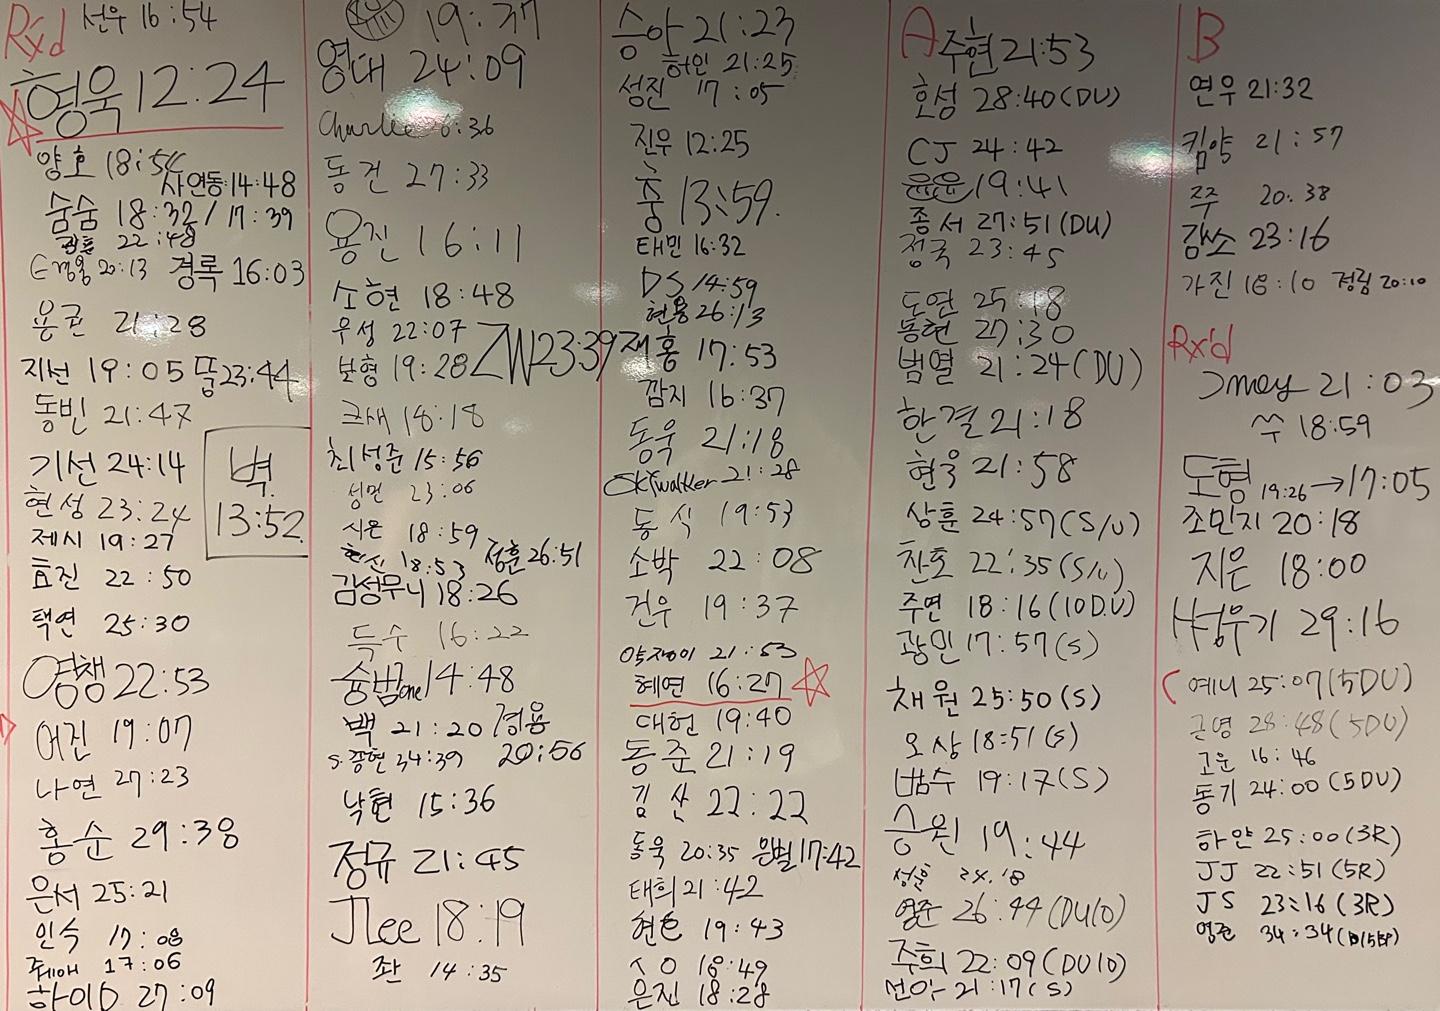 Rx'd 선우 16:54
형욱 12:24
양호 18:54
사연동 14:48
숨숨 18:32 / 17:39
22:48
20:13 경록 16:03
용곤 21:28
지선 19:05 똘 23:44
동빈 21:47
기선 24:14
벽.
13:52.
현성 23:24
제시 19:27
효진 22:50
택연 25:30
영챙 22:53
어진 19:07
나연 27:23
홍순 29:38
은서 25:21
인숙 17:08
쥐애 17:06
하이 27:09
19:37
영대 24:09
Charlie :36
동건 27:33
용진 16:11
소현 18:48
우성 22:07
보형 19:28 ZW 23:39
크새 18:18
최성준 15:56
성민 23:06
시온 18:59
18:53 정훈 26:51
김성무니 18:26
득수 16:22
승범one 14:48
백 21:20 경용
20:56
S.종현 34:39
낙현 15:36
정규 21:45
JLee 18:19
좐 14:35
승아 21:23
허인 21:25
성진 17:05
진우 12:25
충 13:59.
태민 16:32
DS 14:59
현용 26:13
재홍 17:53
깜지 16:37
동욱 21:18
Skywalker 21:28
동식 19:53
소박 22:08
건우 19:37
약쟁이 21:53
혜연 16:27
대헌 19:40
동준 21:19
김산 22:22
동욱 20:35 문벌 17:42
태희 21:42
현호 19:43
ㅅㅇ 18:49
은진 18:28
A 주현 21:53
호성 28:40 (DU)
CJ 24:42
윤윤 19:41
종서 27:51 (DU)
정국 23:45
도연 25:18
동현 27:30
범열 21:24 (DU)
한결 21:18
현욱 21:58
상훈 24:57 (S/U)
찬호 22:35 (S/U)
주연 18:16 (10D.U)
광민 17:57 (S)
채원 25:50 (S)
오상 18:51 (S)
범수 19:17 (S)
승원 19:44
성훈 24.18
영준 26:44 (DU10)
주희 22:09 (DU10)
선아 21:17 (S)
B
연우 21:32
킴약 21:57
쭈 20:38
걤소 23:16
가진 18:10 정림 20:10
Rx'd
Jmay 21:03
쑤 18:59
도형 19:26 → 17:05
조민지 20:18
지은 18:00
29:16
예니 25:07 (5DU)
근영 28:48 (5DU)
고운 16:46
동기 24:00 (5DU)
하얀 25:00 (3R)
JJ 22:51 (5R)
JS 23:16 (3R)
영준 34:34